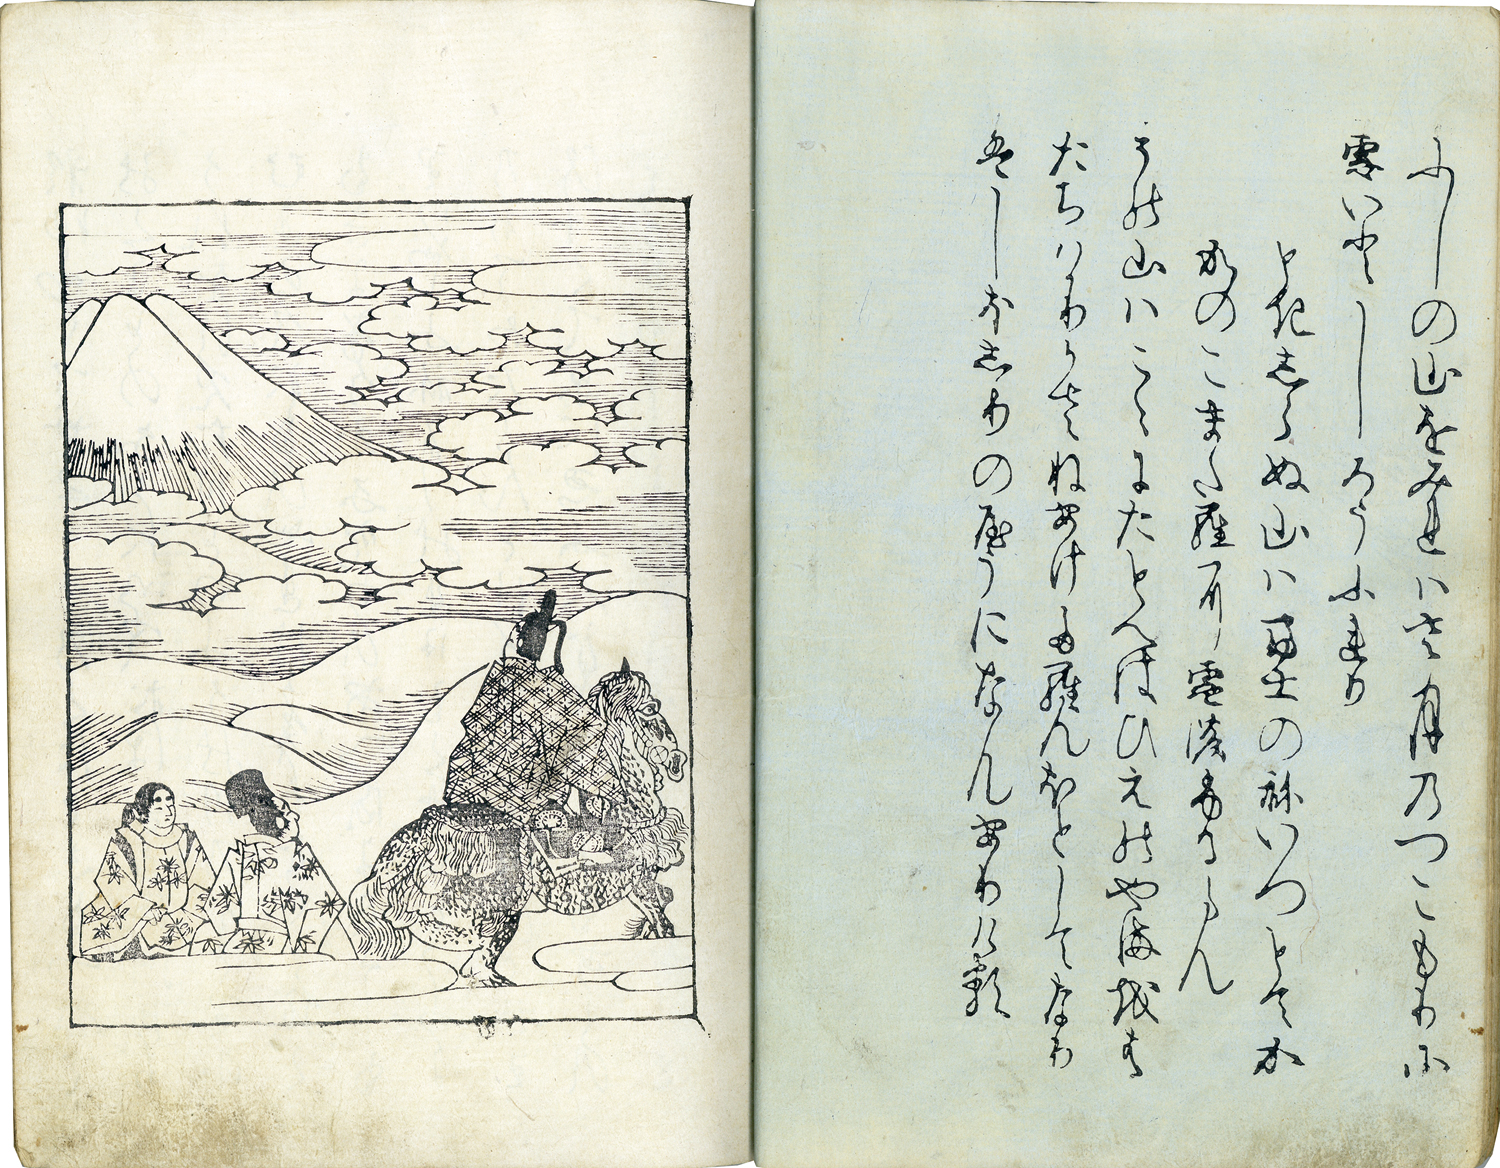 ふしの山をみれハさ月のつこもりに
雪いとしろうふれり
ときしらぬ山ハ冨士のねいつとてか
かのこまたらに雪のふるらん
その山ハこゝにたとへはひえのやまをは
たちハかりかさねあけたらんほとしてなり
はしほしりのやうになんありける